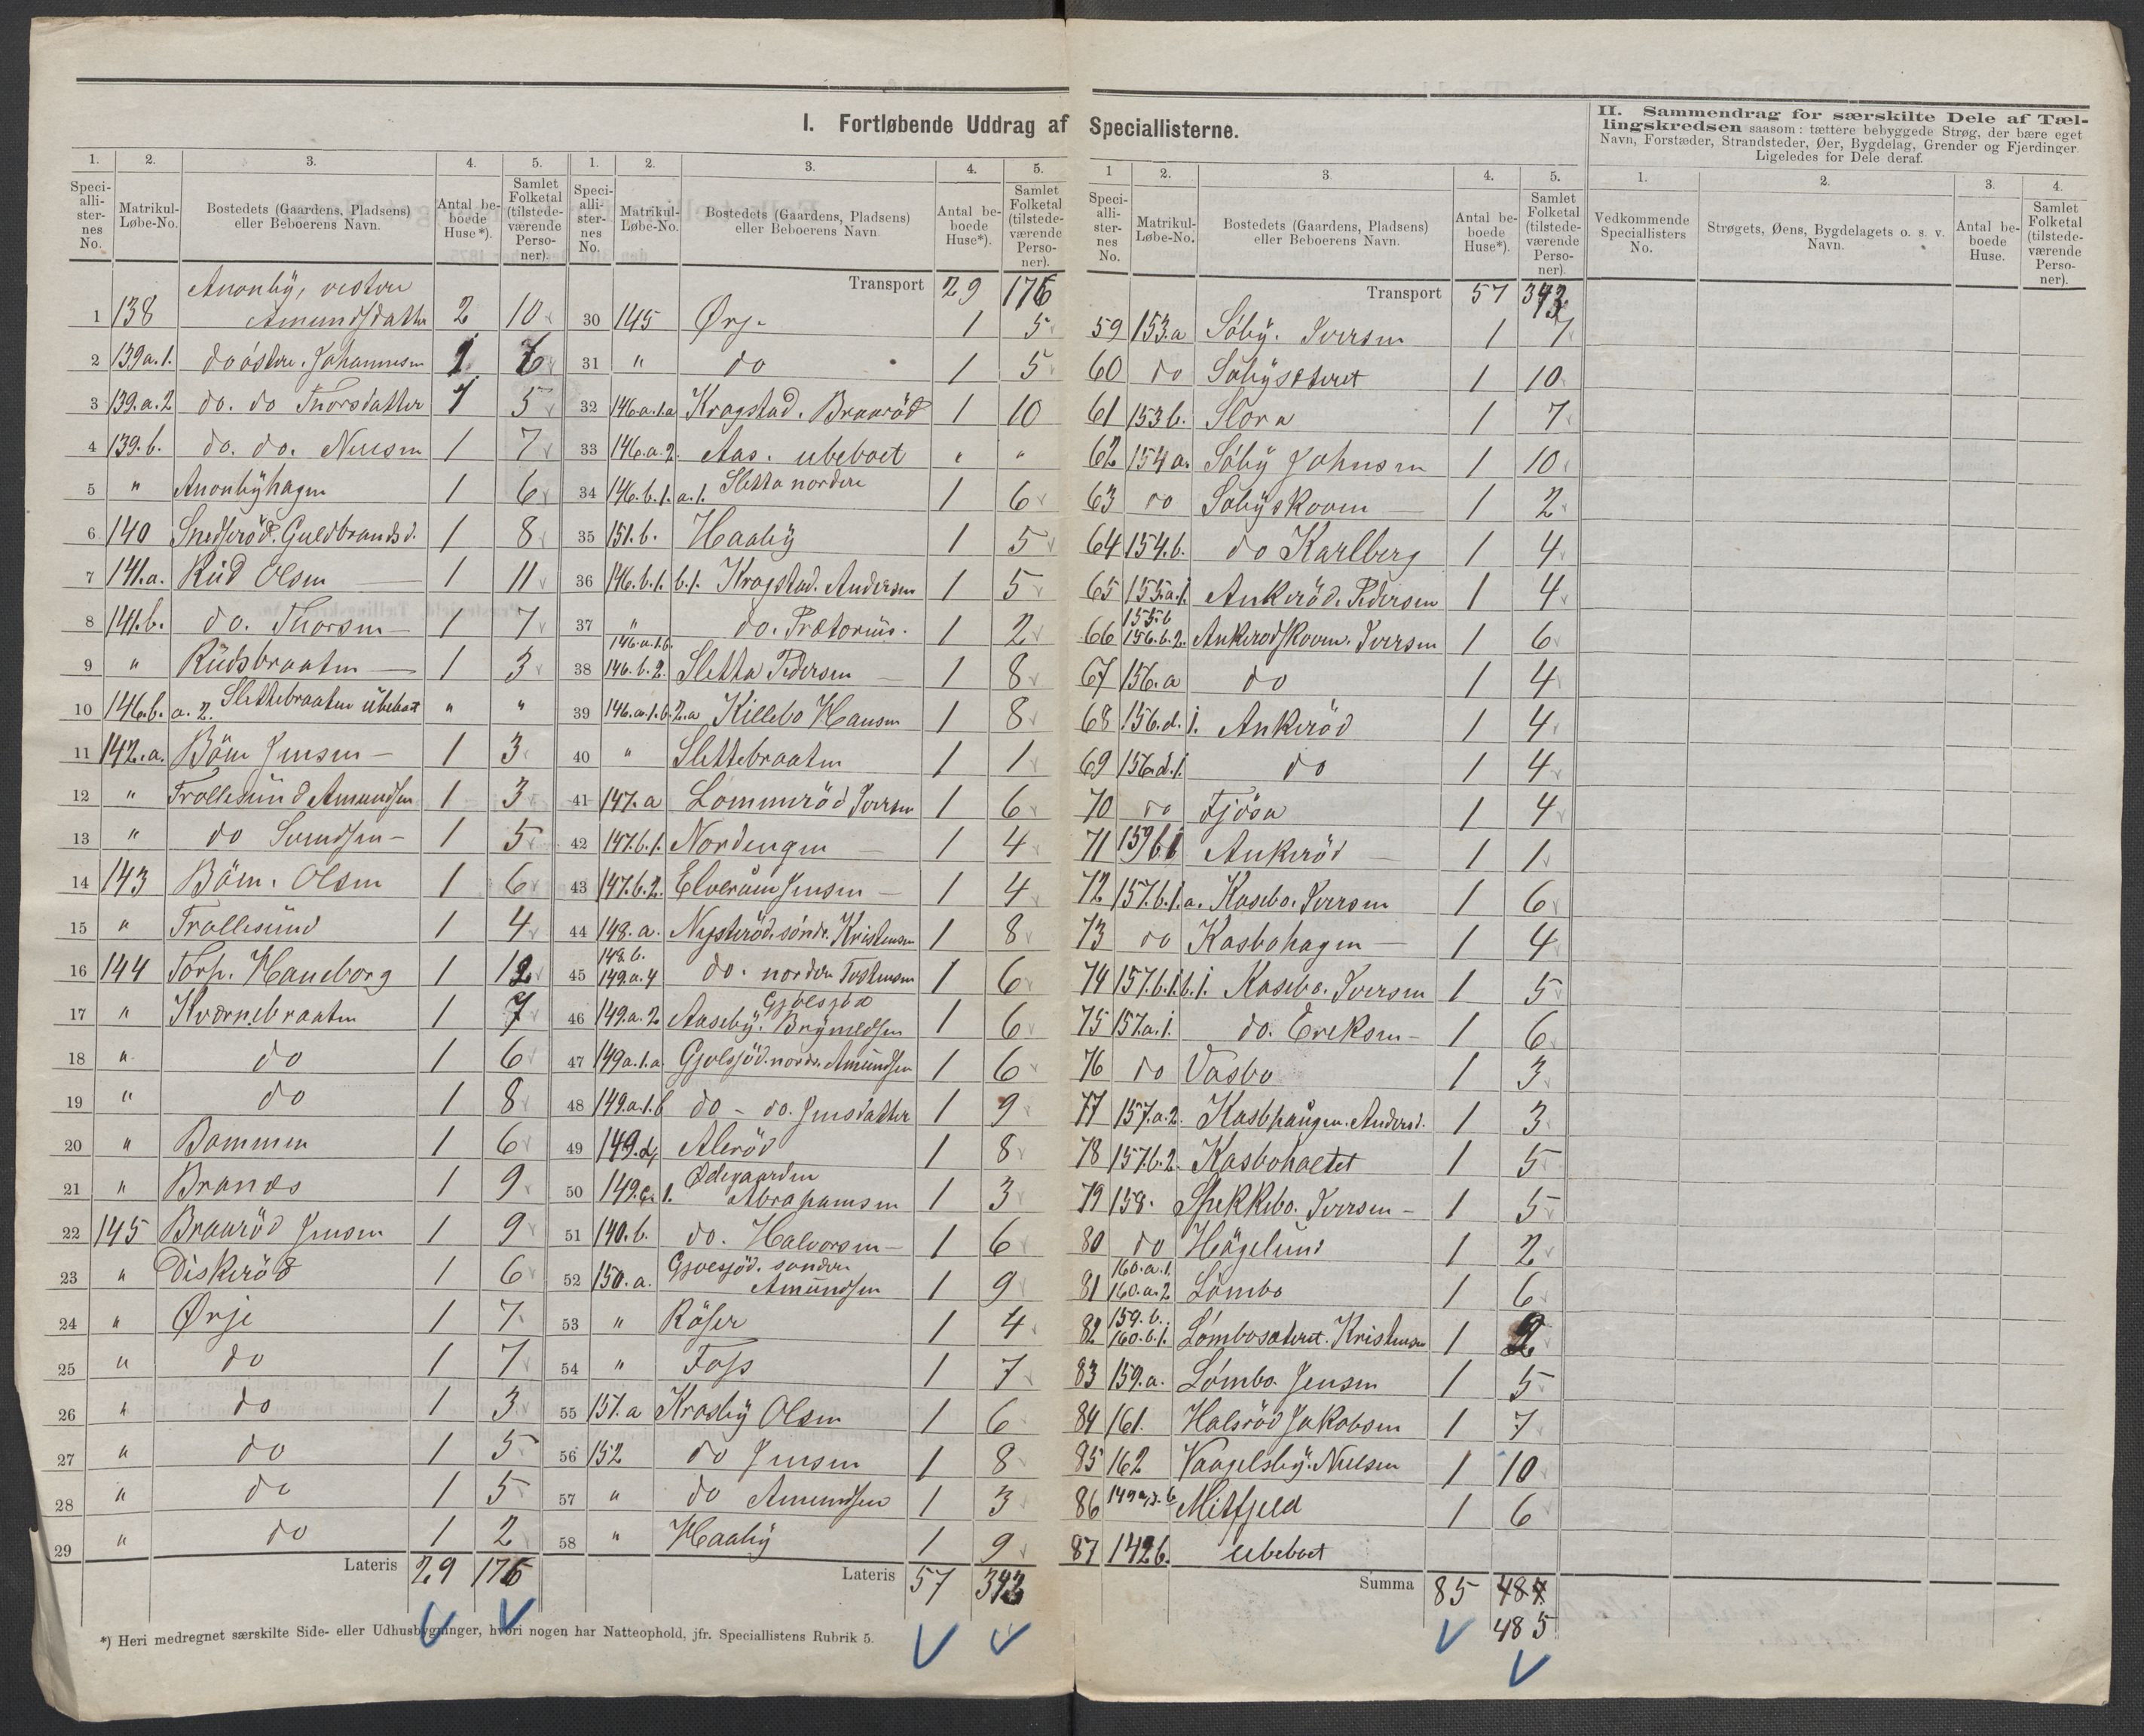 I. Fortløbende Uddrag af Speciallisterne.
II. Sammendrag for særskilte Dele af Tæl-
lingskredsen saasom: tættere bebyggede Strøg, der bære eget
Navn, Forstæder, Strandsteder, Øer, Bygdelag, Grender og Fjerdinger.
Ligeledes for Dele deraf.
1. 2. 3. 4. 5.
Speci-alli-ster-nes No. Matrikul-Løbe-No. Bostedets (Gaardens, Pladsens) eller Beboerens Navn. Antal be-boede Huse*). Samlet Folketal (tilstede-værende Perso-ner).
1 138 Anonby, vestre Amundsdatter 2 10
2 139a.1. do østre. Johannesen 1 6
3 139.a.2 do. do Thorsdatter 1 5
4 139.b. do. do. Nilsen 1 7
5 " Anonbyhagen 1 6
6 140 Snedserød. Guldbrandsd. 1 8
7 141.a. Rud Olsen 1 11
8 141.b. do. Thorsen 1 7
9 " Rudsbraaten 1 3
10 146.b.a.2. Slettebraaten ubeboet " "
11 142.a. Bøen Jensen 1 3
12 " Trollesund Amundsen 1 3
13 " do Svendsen 1 5
14 143 Bøen. Olsen 1 6
15 " Trollesund 1 4
16 144 Torp. Haneborg 1 12
17 " Kvernebraaten 1 7
18 " do 1 6
19 " do 1 8
20 " Bommen 1 6
21 " Brandes 1 9
22 145 Braarød Jensen 1 9
23 " Diskerød 1 6
24 " Ørje 1 7
25 " do 1 7
26 " do 1 3
27 " do 1 5
28 " do 1 5
29 " do 1 2
Lateris 29 176
*) Heri medregnet særskilte Side- eller Udhusbygninger, hvori nogen har Natteophold, jfr. Speciallistens Rubrik 5.
1. 2. 3. 4. 5.
Speci-alli-ster-nes No. Matrikul-Løbe-No. Bostedets (Gaardens, Pladsens) eller Beboerens Navn. Antal be-boede Huse*). Samlet Folketal (tilstede-værende Perso-ner).
Transport 29 176
30 145 Ørje 1 5
31 " do 1 5
32 146a.1.a Kragstad. Braarød 1 10
33 146.a.2. Aas. ubeboet " "
34 146.b.1.a.1. Sletta nordre 1 6
35 151.b. Haaby 1 5
36 146.b.1.b.1. Kragstad. Andersen 1 5
37 " do. Prætorius. 1 2
38 146.a.1.b. 146.b.2. Sletta Pedersen 1 8
39 146.a.1.b.2.a Killebo Hansen 1 8
40 " Slettebraaten 1 1
41 147.a Lommerød Iversen 1 6
42 147.b.1. Nordengen 1 4
43 147.b.2. Elverum Jensen 1 4
44 148.a. Nysterød. søndr. Kristensen 1 8
45 148.b. 149.a.4 do. nordre Torstensen 1 6
46 149.a.2 Aaseby. Gjølsjød Brynildsen 1 6
47 149a.1.a. Gjølsjød. nordr. Amundsen 1 6
48 149.a.1.b do - do. Jensdatter 1 9
49 149.d. Alerød 1 8
50 149.c.1. Ødegaarden Abrahamsen 1 3
51 140.b. do. Halvorsen 1 6
52 150.a. Gjølsjød. søndre Amundsen 1 9
53 " Røser 1 4
54 " Foss 1 7
55 151.a Krosby Olsen 1 6
56 152 do Jensen 1 8
57 " do Amundsen 1 3
58 " Haaby 1 9
Lateris 57 343
1 2. 3. 4. 5.
Speci-alli-ster-nes No. Matrikul-Løbe-No. Bostedets (Gaardens, Pladsens) eller Beboerens Navn. Antal be-boede Huse*). Samlet Folketal (tilstede-værende Perso-ner).
Transport 57 343
59 153.a Søby. Iversen 1 7
60 do Søbysæteret 1 10
61 153b. Slora 1 7
62 154a. Søby Johnsen 1 10
63 do Søbyskoven 1 2
64 154.b. do Karlberg 1 4
65 155.a.1. Ankerød. Pedersen 1 4
66 155.b 156.b.2. Ankerødskoven. Iversen 1 6
67 156.a do 1 4
68 156.d.1. Ankerød 1 4
69 156.d.1. do 1 4
70 do Fjøsa 1 4
71 Ankerød 1 1
72 157.b.1.a. Kasebo. Iversen 1 6
73 do Kasbohagen 1 4
74 157.b.1.b.1. Kasebo. Iversen 1 5
75 157.a.1. do. Ereksen 1 6
76 do Vasbo 1 3
77 157.a.2. Kasbhaugen. Andersd. 1 3
78 157.b.2. Kasboholtet 1 5
79 158. Spekkebo. Iversen 1 5
80 do Høgelund 1 2
81 160.a.1. 160.a.2 Lømbo 1 6
82 159.b. 160.b.1. Lømbosæteret. Kristensen 1 2
83 159.a. Lømbo. Jensen 1 5
84 161. Halsrød Jakobsen 1 7
85 162 Vaagelsby. Nilsen 1 10
86 Mitfjeld 1 6
87 142b. Ubeboet
Summa 85 487
485
1. 2. 3. 4.
Vedkommende Speciallisters No. Strøgets, Øens, Bygdelagets o. s. v. Navn. Antal be-boede Huse. Samlet Folketal (tilstede-værende Perso-ner).